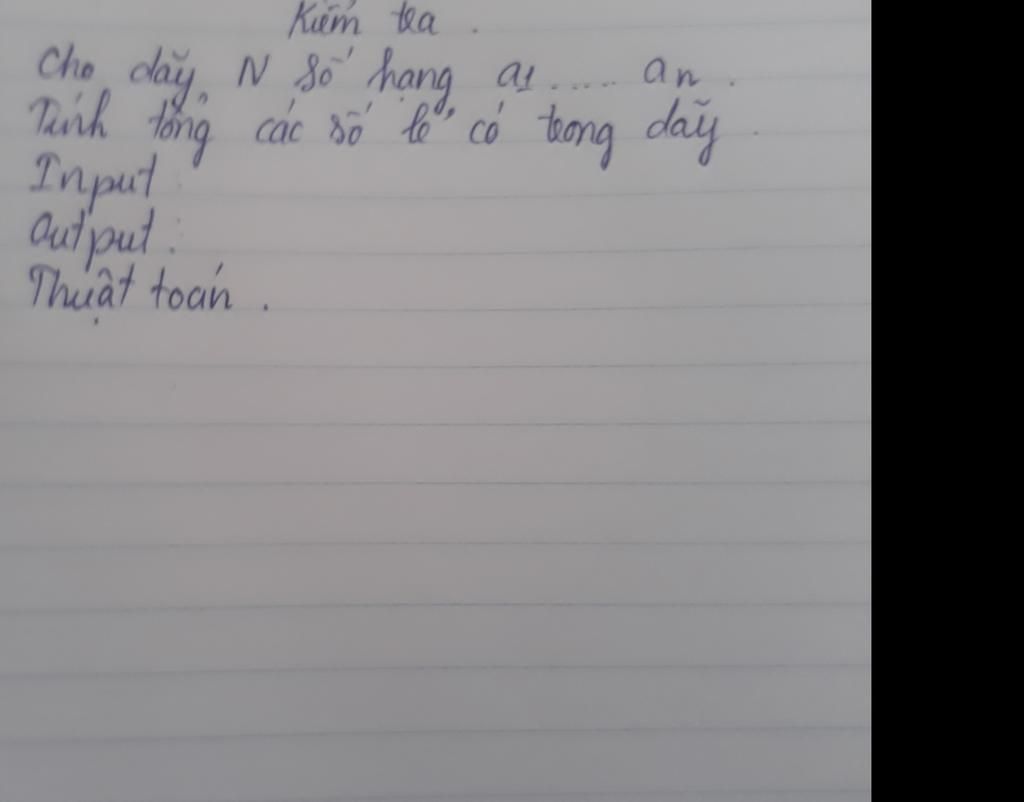 Kiểm tra .
Cho dãy N số hạng a1 ..... an .
Tính tổng các số lẻ có trong dãy .
Input :
Output :
Thuật toán .